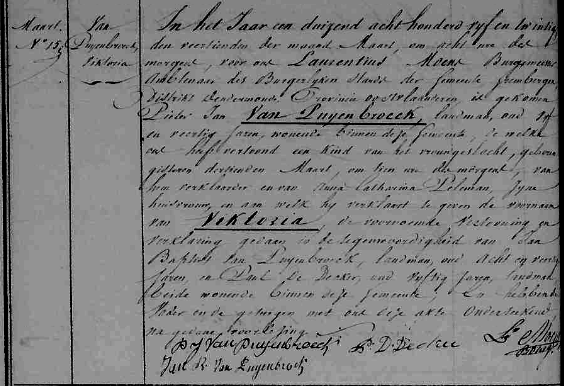 Maart.
N° 15
Van
Puyenbroeck,
Viktoria
In het Jaar een duizend acht honderd vyf en twintig
den veertienden der maand Maart, om acht ure des
morgens, voor ons Laurentius Moens Burgemeester
Ambtenaar des Burgerlyken Stands der Gemeente Grembergen
District Dendermonde, Provincie Oostvlaanderen, is gekomen
Pieter Jan Van Puyenbroeck, landman, oud
en veertig Jaren, wonende binnen deze Gemeente, de welke
ons heeft vertoond een kind van het vrouwgeslacht, geboren
gisteren dertienden Maart, om tien ure des morgens, van
hem verklaarder en van Anna Catharina Peleman, zyne
huisvrouw, en aan welk hy verklaart te geven de voornaam
van Viktoria, de voornoemde vertooning en
verklaring gedaan in de tegenwoordigheid van Jan
Baptist Van Puyenbroeck, landman, oud acht en veertig
Jaren, en Paul De Decker, oud vyftig Jaren, landman
beide wonende binnen deze Gemeente, En hebben de
Vader en de getuigen met ons deze akte onderteekend,
na gedane voorlezing.
P J Van Puyenbroeck P. D. Decker L. Moens
Jan B. Van Puyenbroeck Borgm